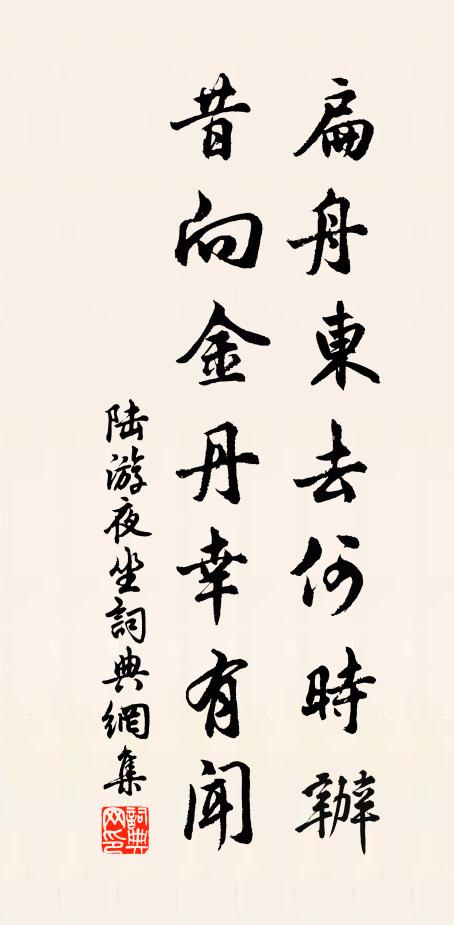 扁舟東去何時辦
昔向金丹幸有聞
陸游夜坐詞典網集
詞典網印